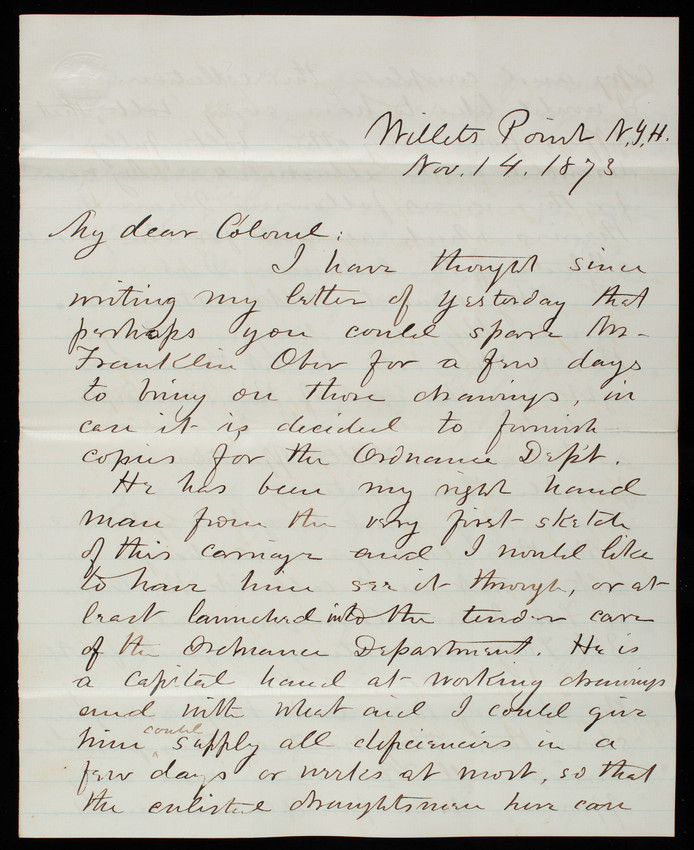 Willets Point N.Y.H.
Nov. 14. 1873
My dear Colonel:
I have thought since
writing my letter of yesterday that
perhaps you could spare Mr
Franklin Ober for a few days
to bring on those drawings, in
case it is decided to furnish
copies for the Ordnance Dep't.
He has been my right hand
man from the very first sketch
of this carriage and I would like
to have him see it through, or at
least launched into the tender care
of the Ordnance Department. He is
a capital hand at working drawings
and with what aid I could give
him could supply all deficiencies in a
few days or weeks at most, so that
the enlisted draughtsmen here can